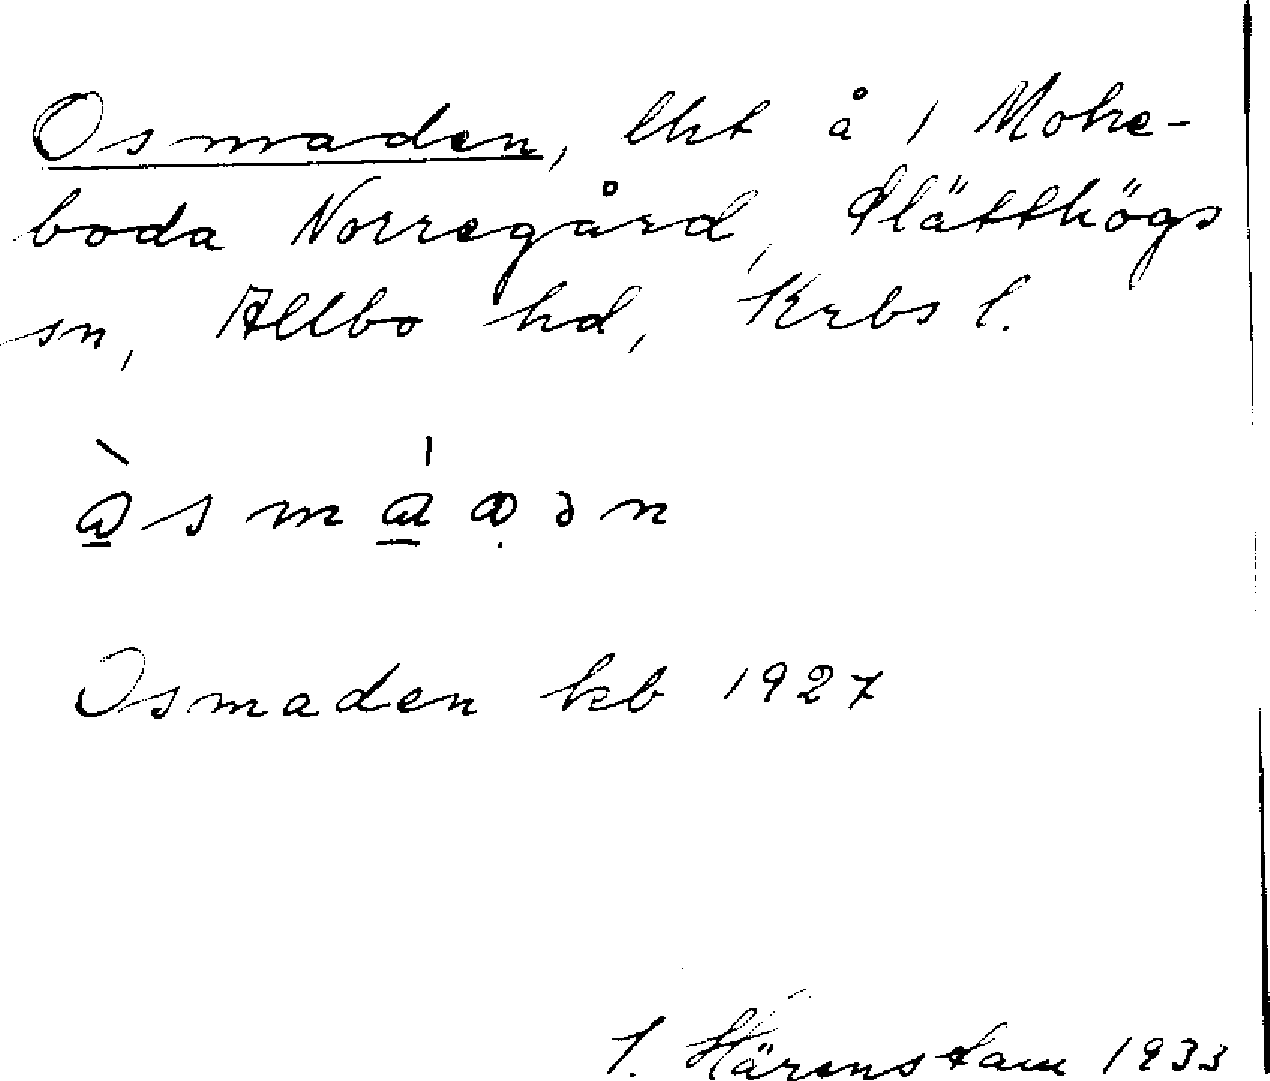 Osmaden, lht å 1 Mohe-
boda Norregård, Slätthögs
sn, Allbo hd, Krbs l.
Osmaden kb 1927
S. Härenstam 1933